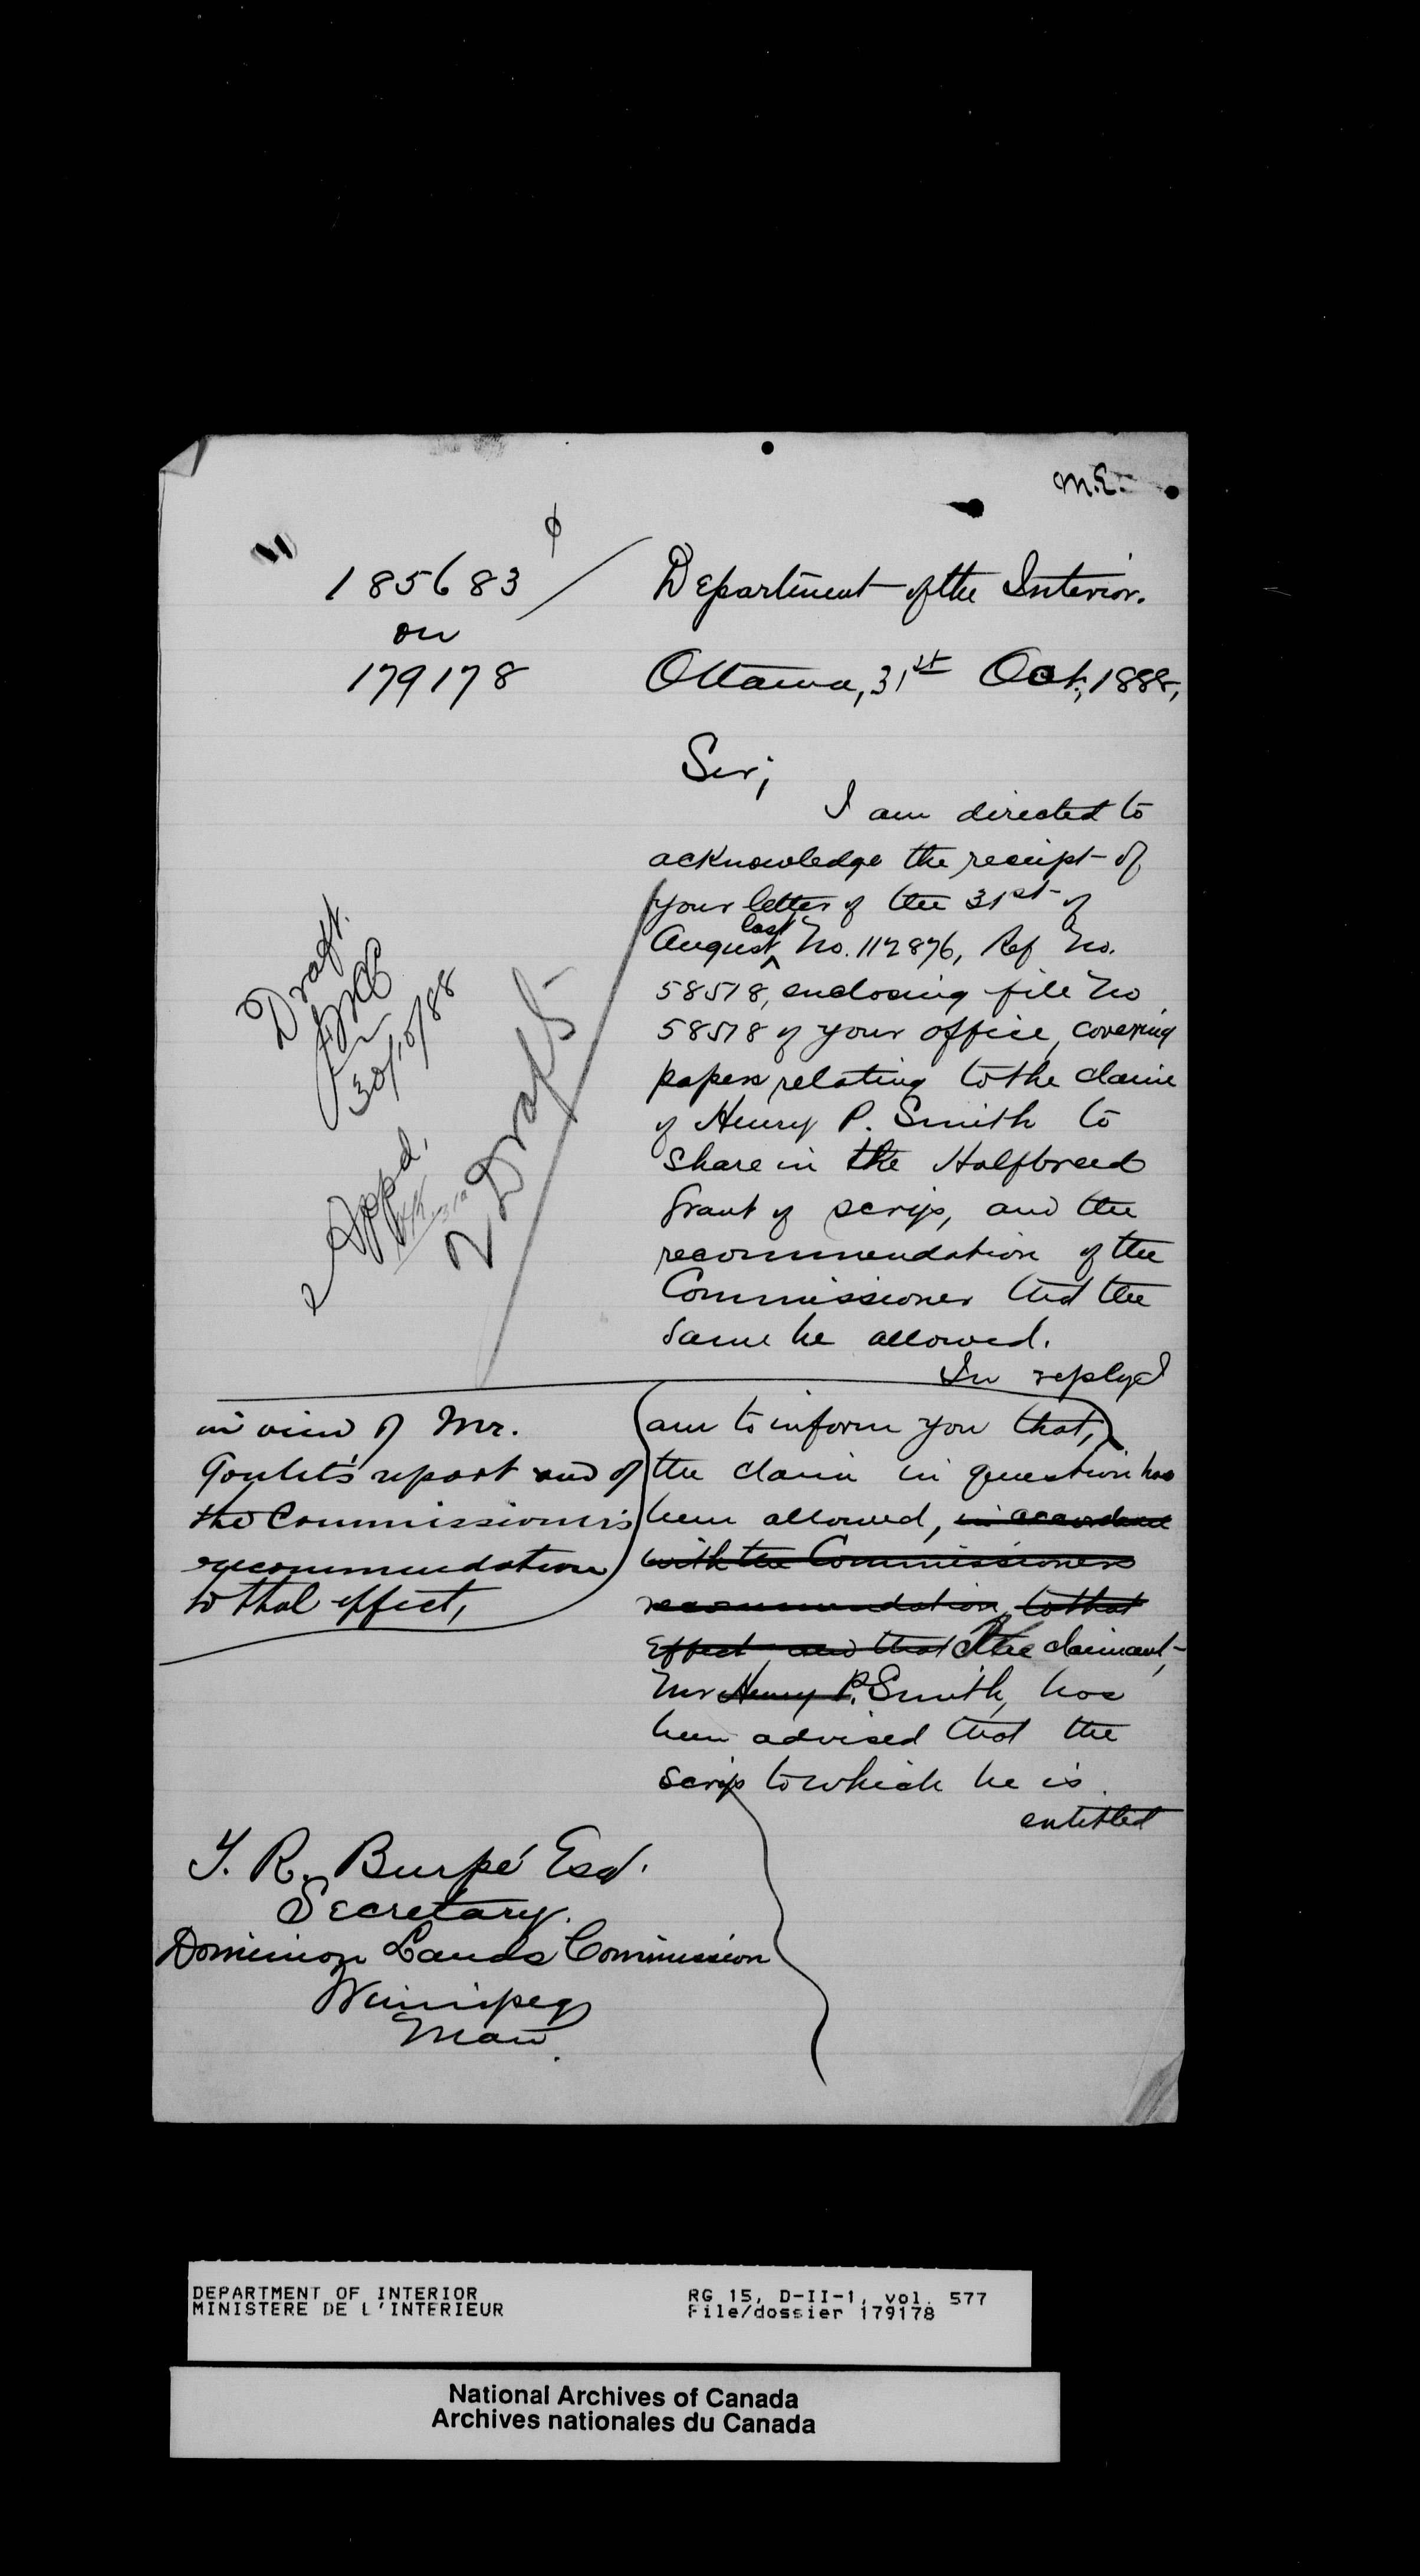 M.E.
185683
on
179178
Department of the Interior.
Ottawa, 31st Oct, 1888,
Sir;
I am directed to
acknowledge the receipt of
your letter of the 31st of
August last No. 112876, Ref No.
58518, enclosing file No
58518 of your office, covering
papers relating to the claim
of Henry P. Smith to
share in the Halfbreed
Grant of scrip, and the
recommendation of the
Commissioner that the
same be allowed.
In reply I
am to inform you that,
in view of Mr.
Goulet's report and of
the Commissioner's
recommendation
to that effect,
the claim in question has
been allowed, in accordance
with the Commissioners
recommendation, to that
effect and that The claimant,
Mr Henry P. Smith, has
been advised that the
scrip to which he is
entitled
Draft.
30/10/88
Appd.
2 Drafts
T. R. Burpé Esq.
Secretary.
Dominion Lands Commission
Winnipeg
Man.
DEPARTMENT OF INTERIOR
MINISTERE DE L'INTERIEUR
RG 15, D-II-1, vol. 577
File/dossier 179178
National Archives of Canada
Archives nationales du Canada